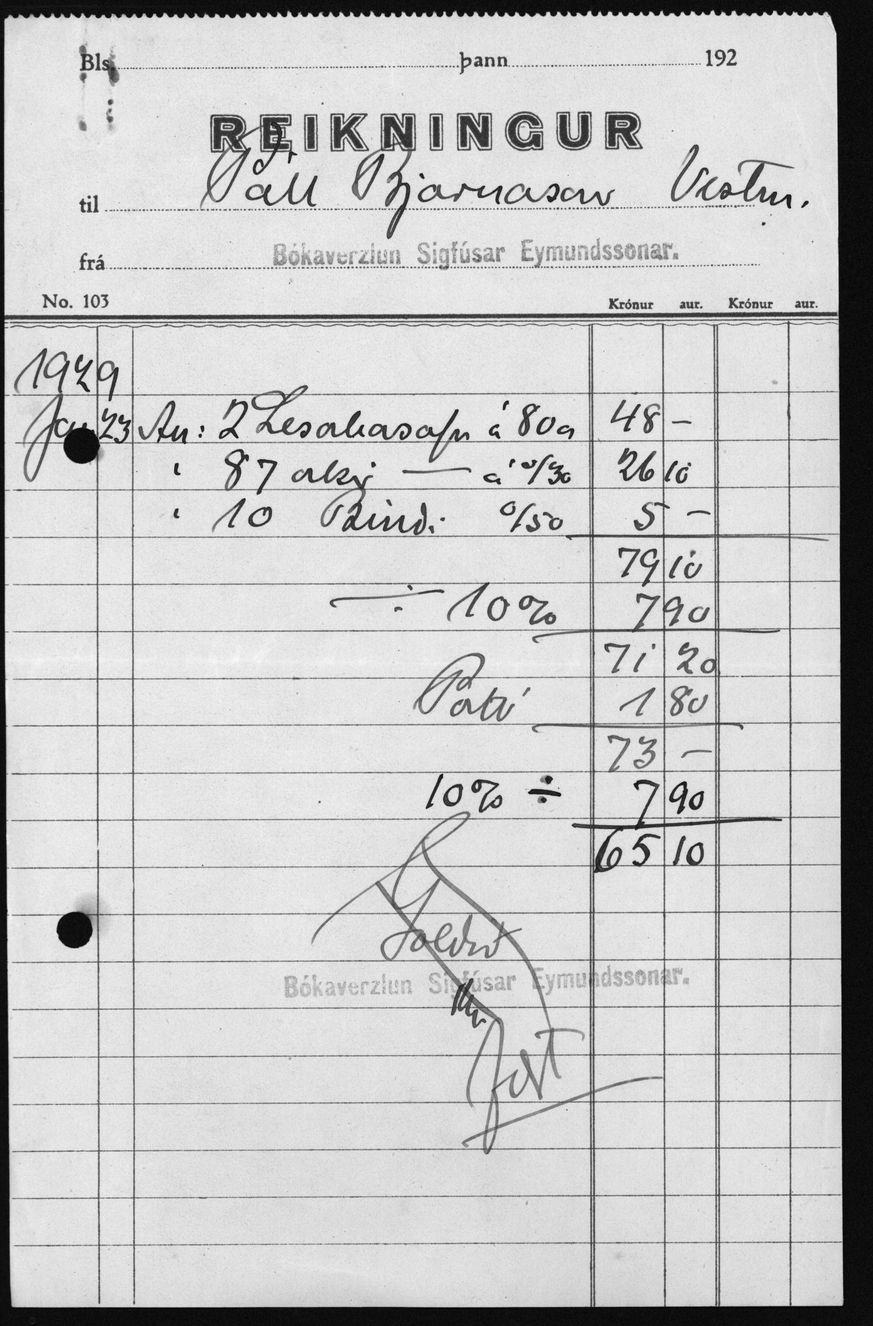 Bls. þann 192
REIKNINGUR
til Páll Bjarnason Vestm.
frá Bókaverzlun Sigfúsar Eymundssonar.
No. 103 Krónur aur. Krónur aur.
1929
Jan 23 An: 2 Lesarkasafn á 80a 48 -
" 87 arkir — á 0/30 26 10
" 10 Bindi 0/50 5 -
79 10
÷ 10% 7 90
71 20
1 80
73 -
10% ÷ 7 90
65 10
Bókaverzlun Sigfúsar Eymundssonar.